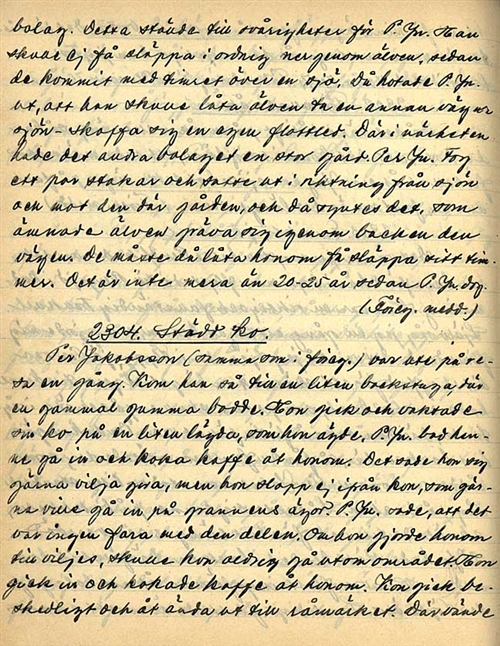 bolag. Detta stände till svårigheter för P. Jn. Han
skulle ej få släppa i ordning ner genom älven, sedan
de kommit med timret över en sjö. Då hotade P. Jn.
ut, att han skulle låta älven ta en annan väg ur
sjön - skaffa sig en egen flottled. Där i närheten
hade det andra bolaget en stor gård. Per Jn. tog
ett par stakar och satte ut i riktning från sjön
och mot den där gården, och då syntes det, som
ämnade älven gräva sig igenom backen den
vägen. De måste då låta honom få släppa sitt tim-
mer. Det är inte mera än 20-25 år sedan P. Jn. dog.
(Föreg. medd.)
2304. Städd ko.
Per Jakobsson (samma som i föreg.) var ute på re-
sa en gång. Kom han så till en liten backstuga, där
en gammal gumma bodde. Hon gick och vaktade
sin ko på en liten lägda, som hon ägde. P. Jn. bad hen-
ne gå in och koka kaffe åt honom. Det sade hon sig
gärna vilja göra, men hon slapp ej ifrån kon, som gär-
na ville gå in på grannens ägor. P. Jn. sade, att det
var ingen fara med den delen. Om hon gjorde honom
till viljes, skulle kon aldrig gå utom området. Hon
gick in och kokade kaffe åt honom. Kon gick be-
skedligt och åt ända ut till råmärket. Där vände